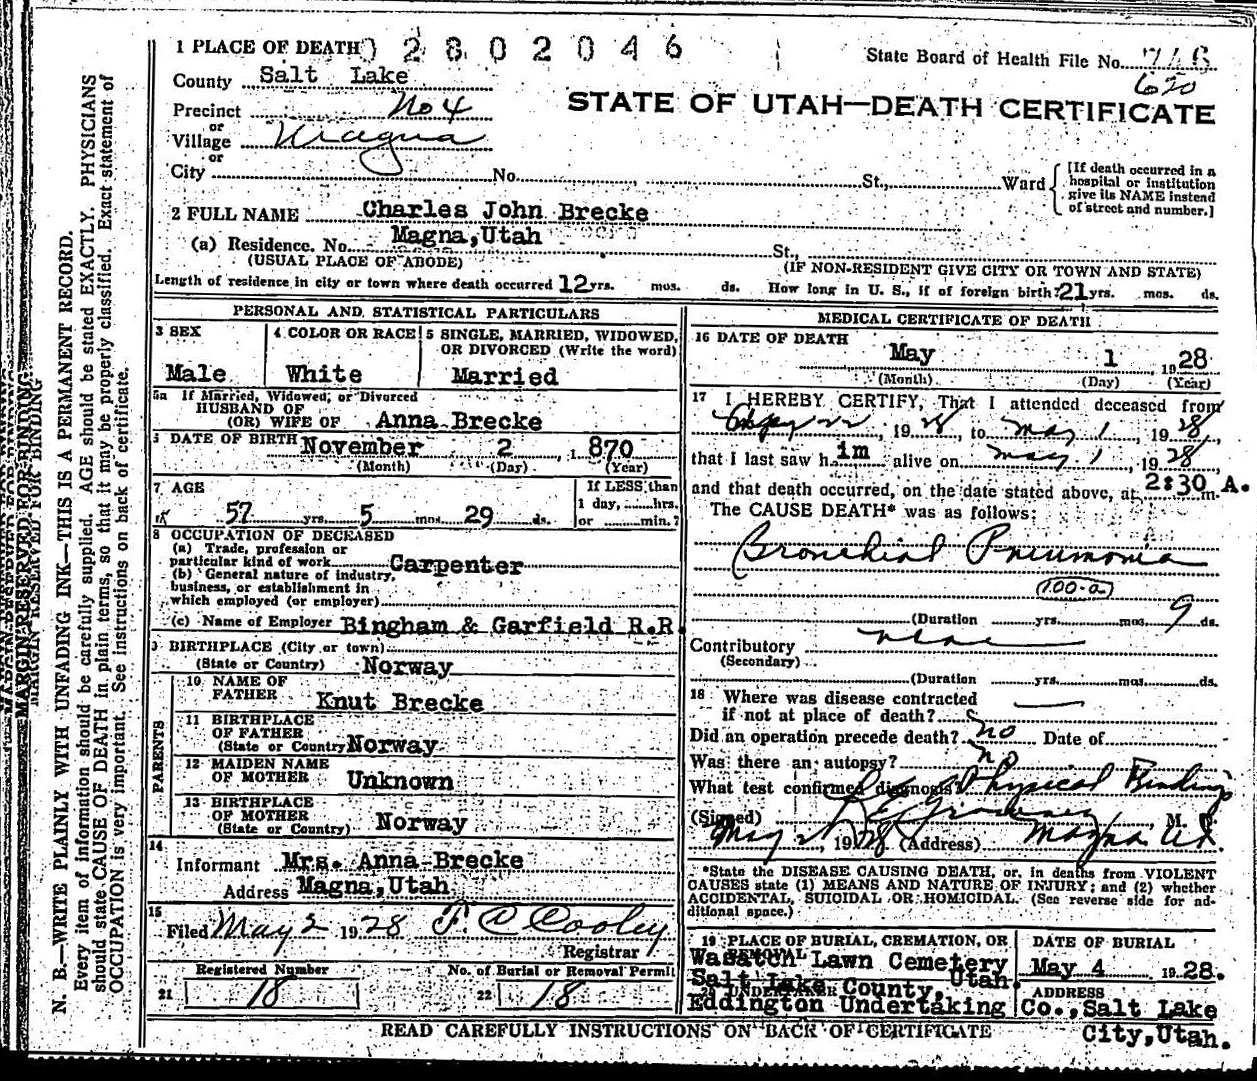 1 PLACE OF DEATH 0 2 8 0 2 0 4 6
State Board of Health File No. 746
620
County Salt Lake
Precinct No 4
or
Village Magna
or
City No. St., Ward
[If death occurred in a hospital or institution give its NAME instead of street and number.]
STATE OF UTAH—DEATH CERTIFICATE
2 FULL NAME Charles John Brecke
(a) Residence. No. Magna,Utah St.,
(USUAL PLACE OF ABODE) (IF NON-RESIDENT GIVE CITY OR TOWN AND STATE)
Length of residence in city or town where death occurred 12 yrs. mos. ds. How long in U. S., if of foreign birth? 21 yrs. mos. ds.
PERSONAL AND STATISTICAL PARTICULARS
3 SEX 4 COLOR OR RACE 5 SINGLE, MARRIED, WIDOWED,
OR DIVORCED (Write the word)
Male White Married
5a If Married, Widowed, or Divorced
HUSBAND OF
(OR) WIFE OF Anna Brecke
DATE OF BIRTH November 2 1 870
(Month) (Day) (Year)
7 AGE If LESS than
1 day, hrs.
57 yrs. 5 mos. 29 ds. or min.?
8 OCCUPATION OF DECEASED
(a) Trade, profession or
particular kind of work Carpenter
(b) General nature of industry,
business, or establishment in
which employed (or employer)
(c) Name of Employer Bingham & Garfield R.R.
9 BIRTHPLACE (City or town)
(State or Country) Norway
PARENTS
10 NAME OF
FATHER Knut Brecke
11 BIRTHPLACE
OF FATHER
(State or Country) Norway
12 MAIDEN NAME
OF MOTHER Unknown
13 BIRTHPLACE
OF MOTHER
(State or Country) Norway
14
Informant Mrs. Anna Brecke
Address Magna,Utah
15
Filed May 2 1928 F. C Cooley
Registrar
Registered Number No. of Burial or Removal Permit
21 18 22 18
MEDICAL CERTIFICATE OF DEATH
16 DATE OF DEATH
May 1 1928
(Month) (Day) (Year)
17 I HEREBY CERTIFY, That I attended deceased from
22, 1928, to May 1, 1928,
that I last saw h im alive on May 1, 1928,
and that death occurred, on the date stated above, at 2:30 A. m.
The CAUSE DEATH* was as follows:
Bronchial Pneumonia
100-a
(Duration yrs. mos. 9 ds.
Contributory none
(Secondary)
(Duration yrs. mos. ds.
18 Where was disease contracted
if not at place of death?
Did an operation precede death? no Date of
Was there an autopsy? no
What test confirmed diagnosis? Physical Findings
(Signed) M. D.
May 2, 1928 (Address) Magna Ut.
*State the DISEASE CAUSING DEATH, or, in deaths from VIOLENT
CAUSES state (1) MEANS AND NATURE OF INJURY; and (2) whether
ACCIDENTAL, SUICIDAL OR HOMICIDAL. (See reverse side for ad-
ditional space.)
19 PLACE OF BURIAL, CREMATION, OR REMOVAL DATE OF BURIAL
Wasatch Lawn Cemetery May 4 1928.
Salt Lake County, Utah.
20 UNDERTAKER ADDRESS
Eddington Undertaking Co.,Salt Lake
City,Utah.
READ CAREFULLY INSTRUCTIONS ON BACK OF CERTIFICATE
MARGIN RESERVED FOR BINDING
N. B.—WRITE PLAINLY WITH UNFADING INK—THIS IS A PERMANENT RECORD.
Every item of information should be carefully supplied. AGE should be stated EXACTLY. PHYSICIANS
should state CAUSE OF DEATH in plain terms, so that it may be properly classified. Exact statement of
OCCUPATION is very important. See instructions on back of certificate.